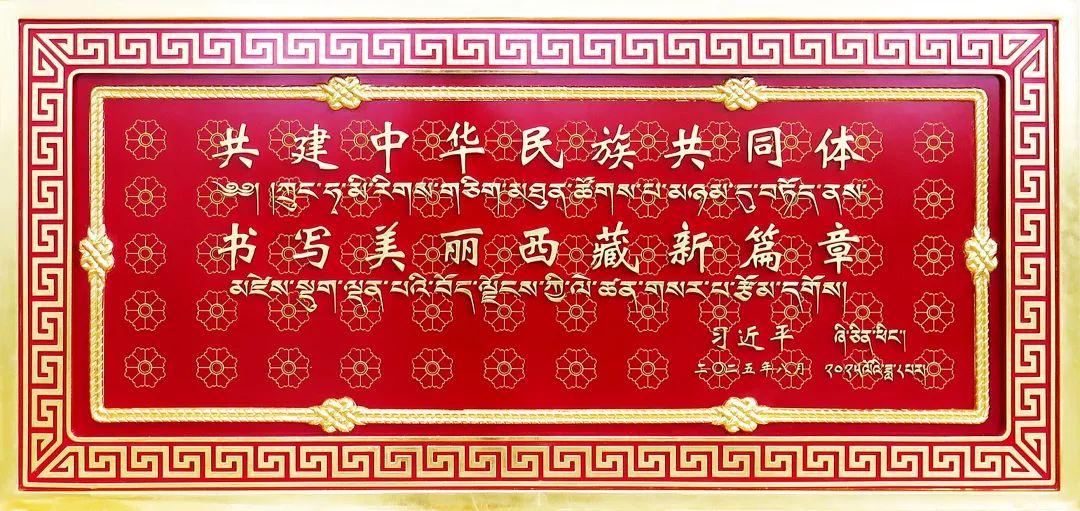 共建中华民族共同体
༄༅། །ཀྲུང་ཧྭ་མི་རིགས་གཅིག་མཐུན་ཚོགས་པ་མཉམ་དུ་བཏོད་ནས་
书写美丽西藏新篇章
མཛེས་སྡུག་ལྡན་པའི་བོད་ལྗོངས་ཀྱི་ལེ་ཚན་གསར་པ་རྩོམ་དགོས།
习近平 ཞི་ཅིན་ཕིང་།
二〇二五年八月 ༢༠༢༥ལོའི་ཟླ་༨པར།